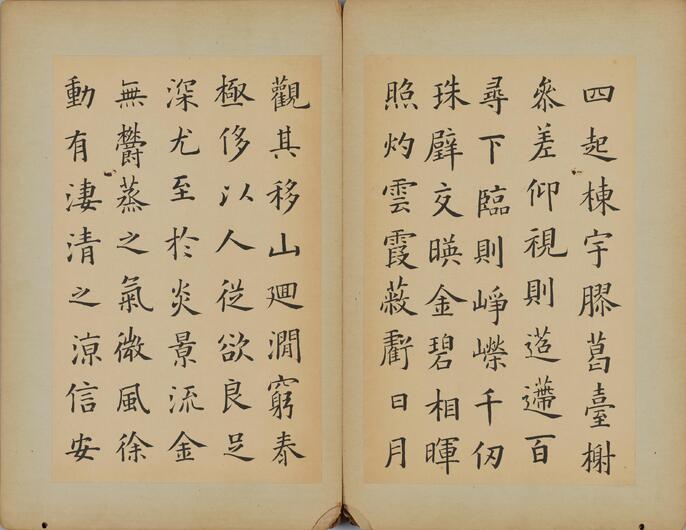 四起棟宇膠葛臺榭
叅差仰視則迢遰百
尋下臨則崢嶸千仞
珠壁交暎金碧相暉
照灼雲霞蔽虧日月
觀其移山迴澗窮泰
極侈以人従欲良足
深尤至於炎景流金
無欝蒸之氣微風徐
動有淒清之涼信安